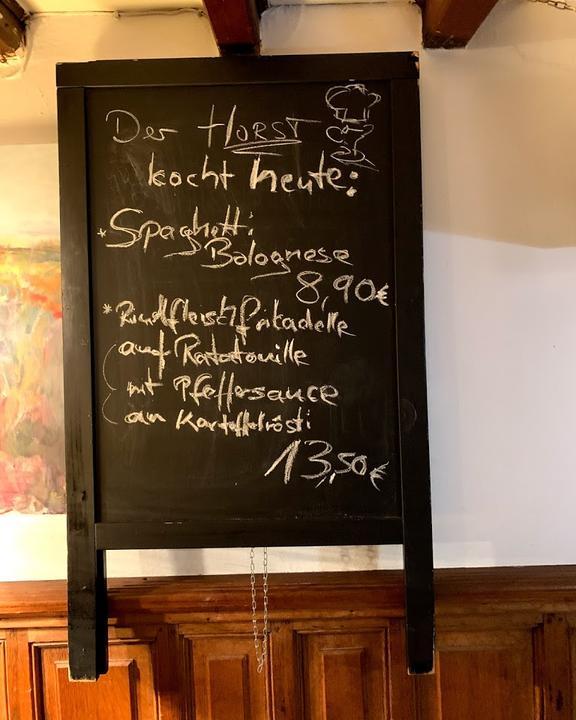 Der HORST
kocht heute:
* Spaghetti
Bolognese
8,90€
* Rindfleischfrikadelle
auf Ratatouille
mit Pfeffersauce
an Kartoffelrösti
13,50€